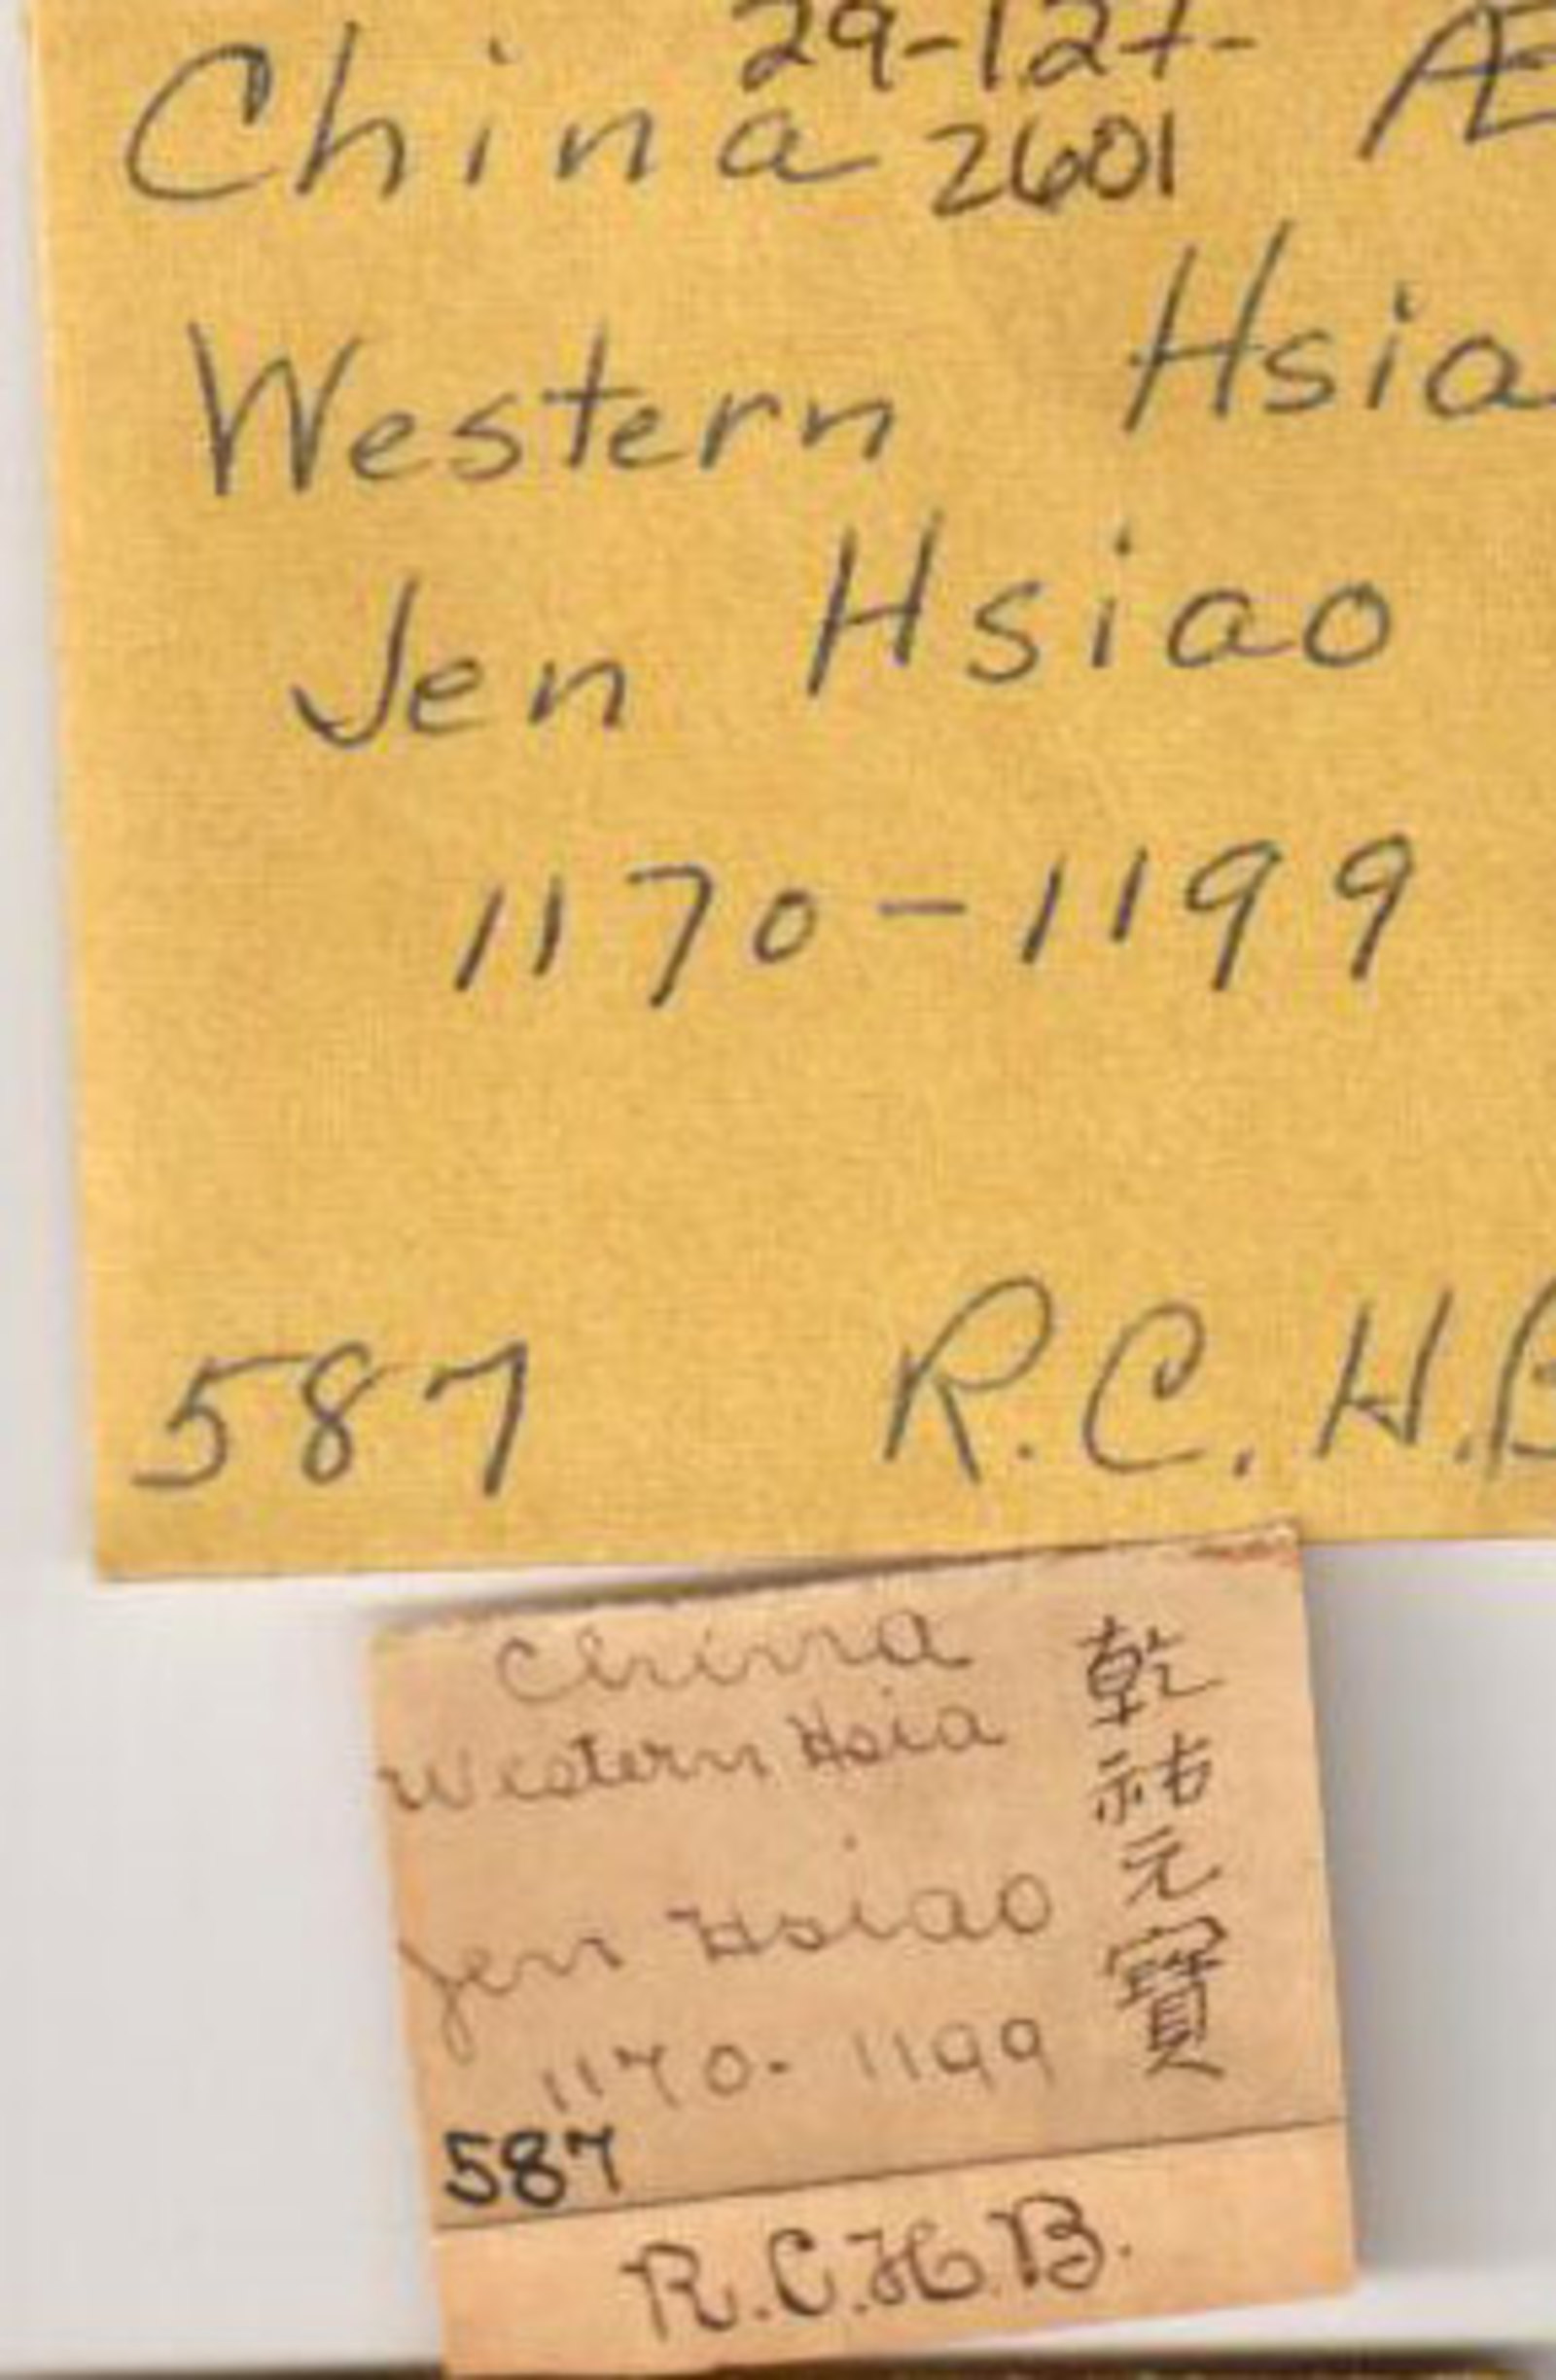 29-127-
China 2601 Æ
Western Hsia
Jen Hsiao
1170-1199
587 R.C.H.B
China
Western Hsia
Jen Hsiao
1170-1199
587
R.C.H.B.
乾祐元寶